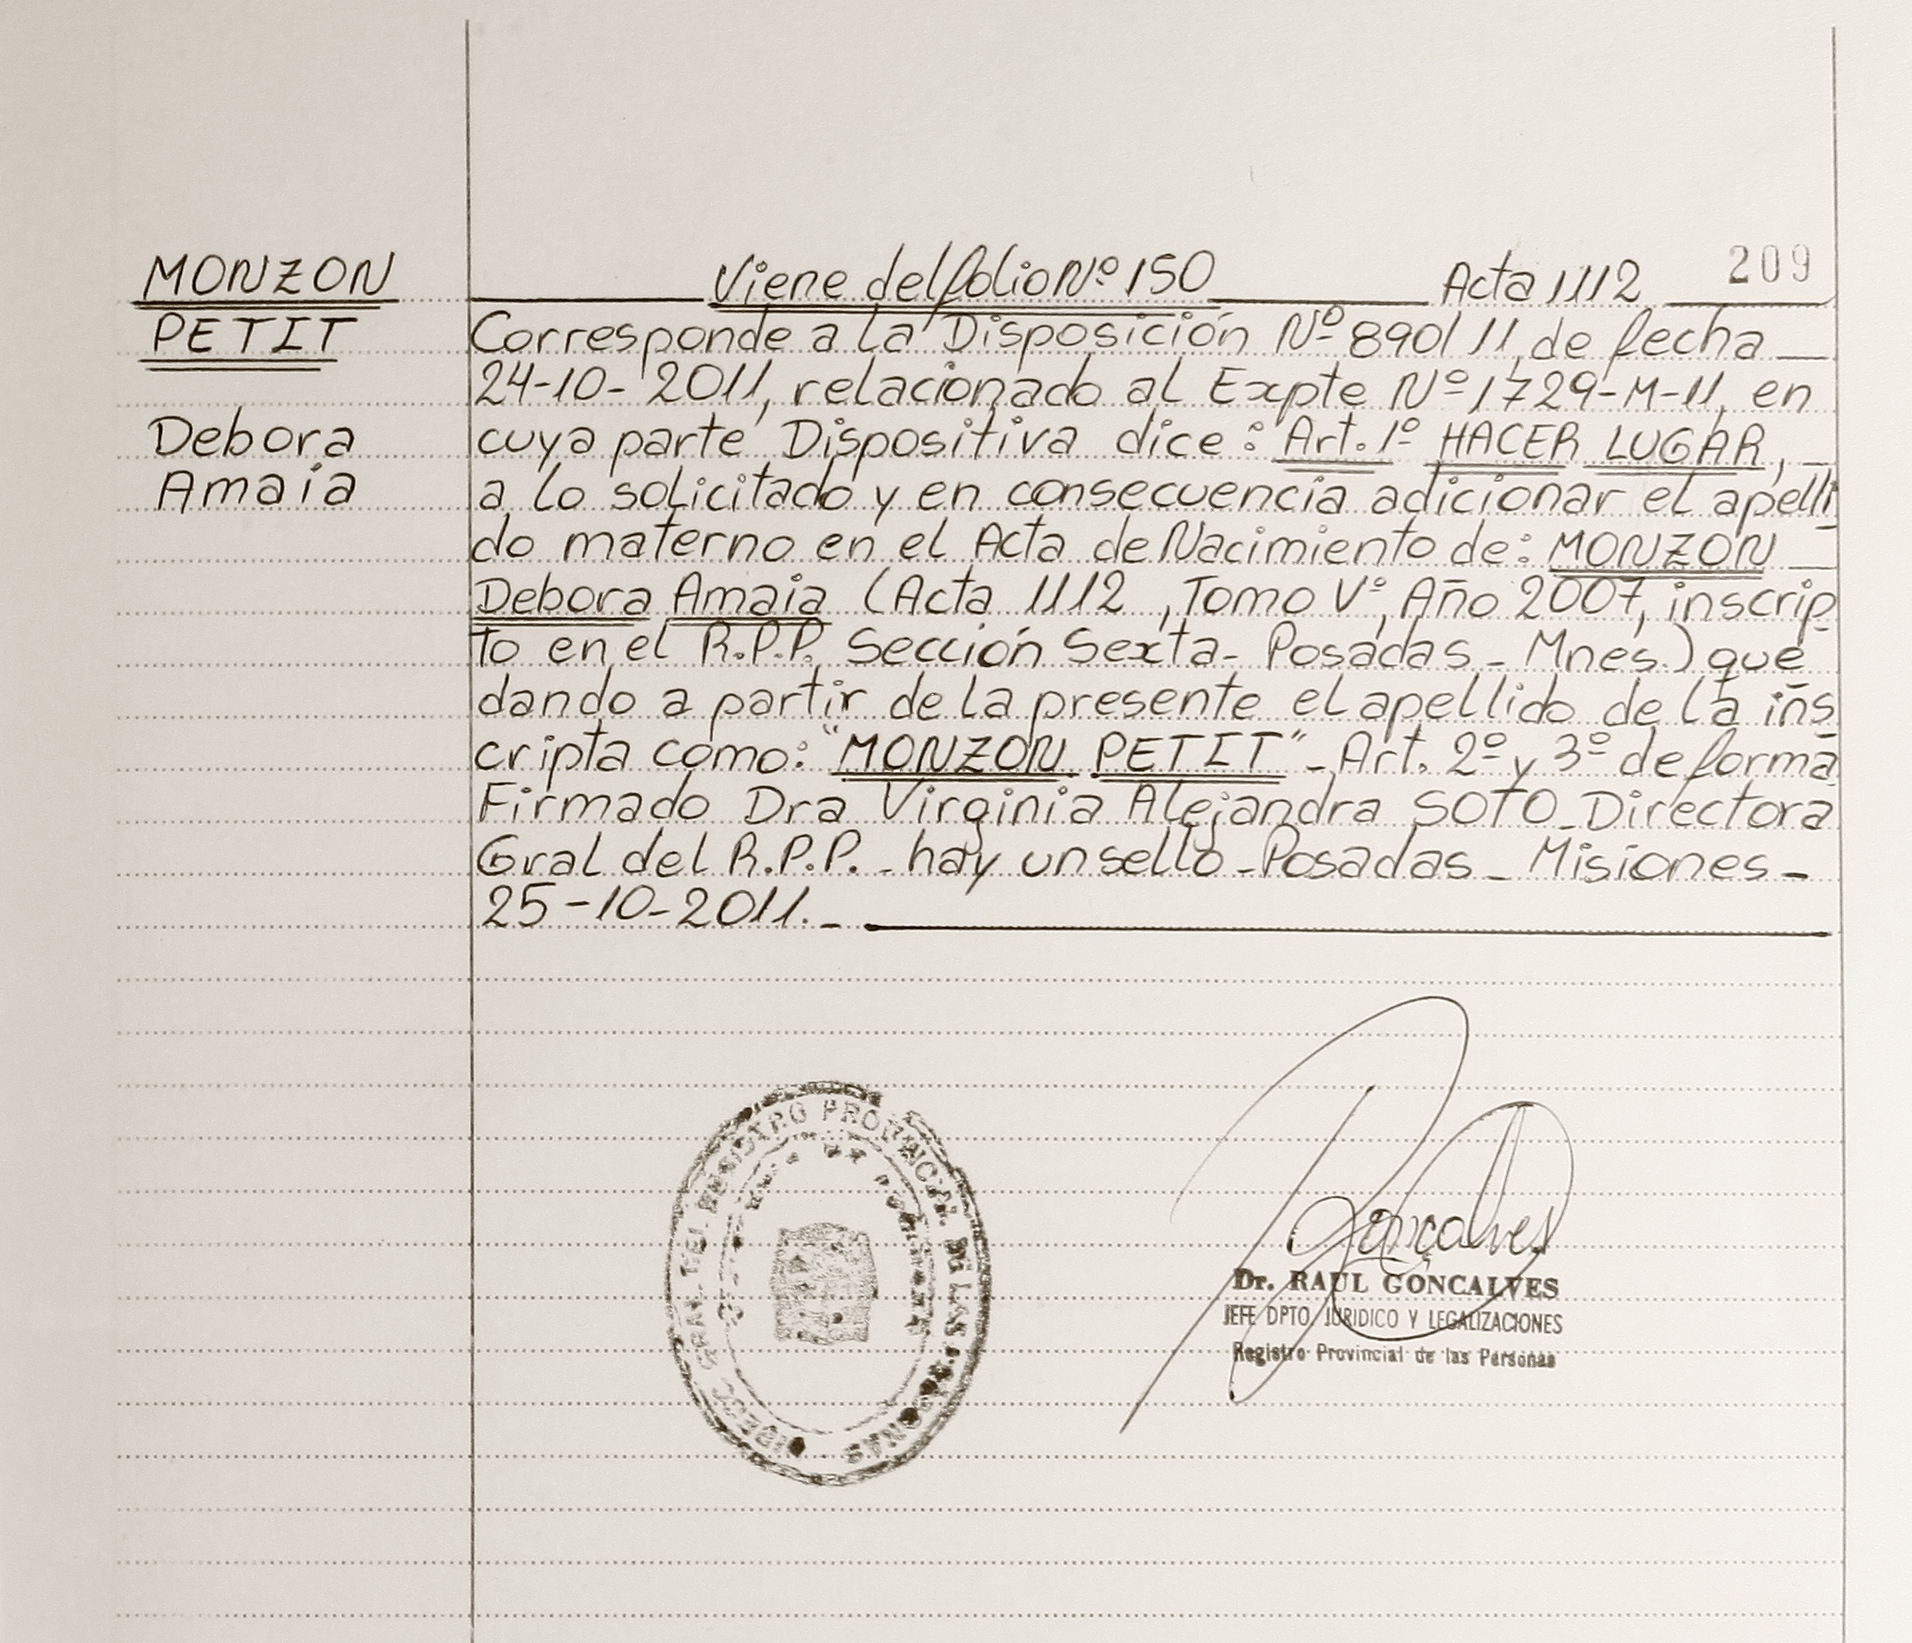 209
MONZON
PETIT
Debora
Amaia
Viene del folio Nº 150 Acta 1112
Corresponde a la Disposición Nº 890/11, de fecha
24-10-2011, relacionado al Expte Nº 1729-M-11, en
cuya parte Dispositiva dice: Art. 1º HACER LUGAR,
a lo solicitado y en consecuencia adicionar el apelli
do materno en el Acta de Nacimiento de: MONZON
Debora Amaia (Acta 1112, Tomo Vº, Año 2007, inscrip
to en el R.P.P. Sección Sexta- Posadas - Mnes.) que
dando a partir de la presente el apellido de la ins
cripta como: "MONZON PETIT" - Art. 2º y 3º de forma
Firmado Dra Virginia Alejandra SOTO - Directora
Gral del R.P.P. - hay un sello - Posadas - Misiones -
25-10-2011. -
REGISTRO PROVINCIAL DE LAS PERSONAS
Gonçalves
Dr. RAUL GONCALVES
JEFE DPTO JURIDICO Y LEGALIZACIONES
Registro Provincial de las Personas